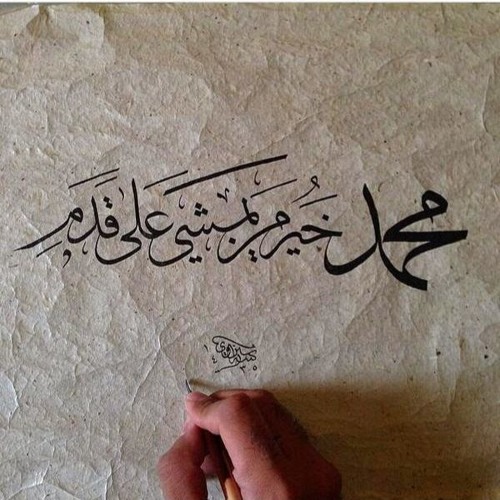 محمد خَيُر مَن يمشي عَلى قَدَمِ
١٤٣٥